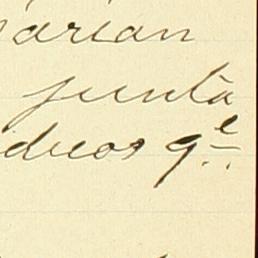 arian
junta
dicos q.e